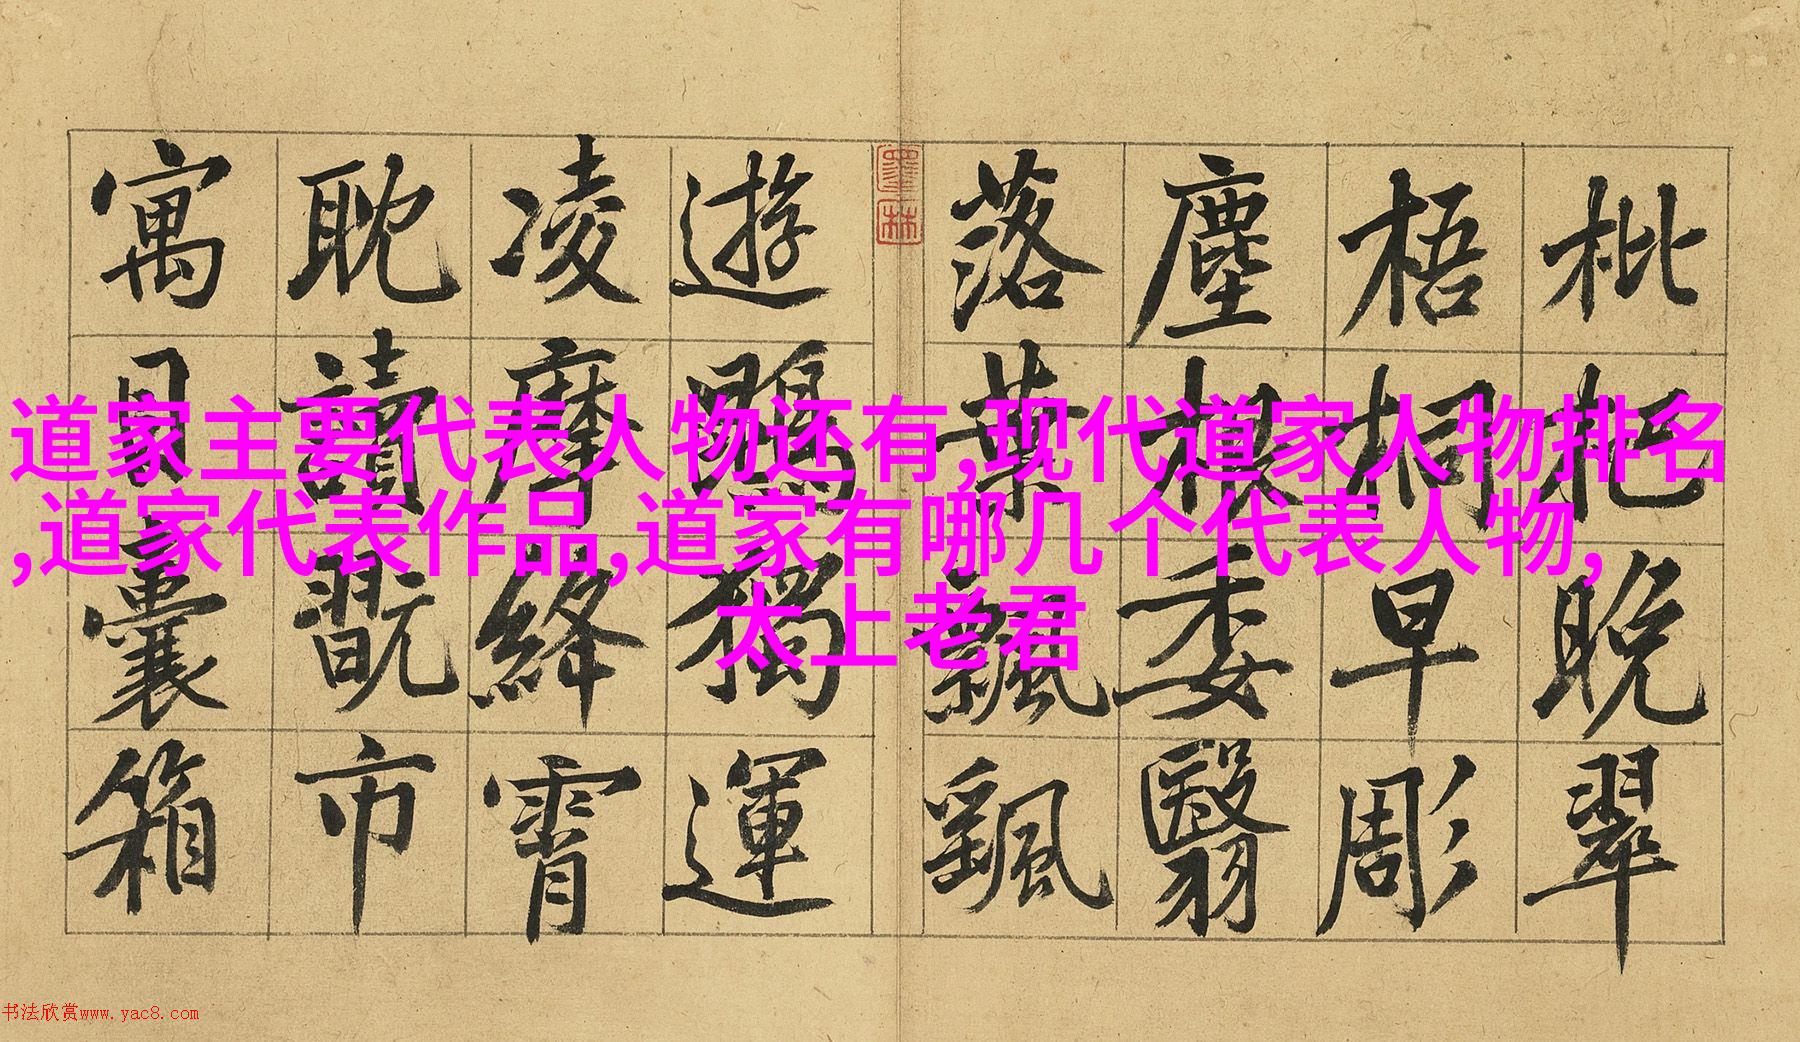 道家主要代表人物还有,现代道家人物排名
,道家代表作品,道家有哪几个代表人物,
太上老君
枇杷晚翠
梧桐早彫
塵根委翳
落葉飄颻
遊鵾獨運
凌摩絳霄
耽讀翫市
寓目囊箱
墨林
书法欣赏www.yac8.com